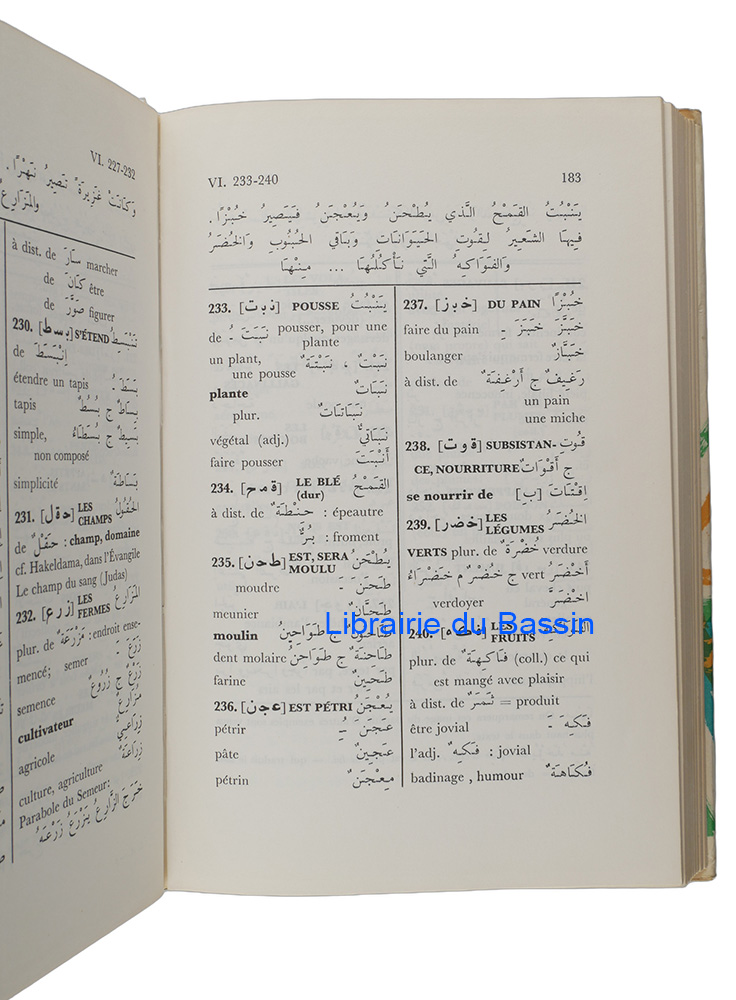 VI. 227-232
وَكَانَتْ غَزِيرَةً تَصِيرُ نَهْرًا .
à dist. de سَارَ marcher
de كَانَ être
de صَوَّرَ figurer
230. [بسط] S'ÉTEND تَنْبَسِطُ
de اِنْبَسَطَ
étendre un tapis بَسَطَ ـُ
tapis بِسَاطٌ ج بُسُطٌ
simple, بَسِيطٌ ج بُسَطَاءُ
non composé
simplicité بَسَاطَةٌ
231. [حقل] LES CHAMPS الحُقُولُ
de حَقْلٌ : champ, domaine
cf. Hakeldama, dans l'Évangile
Le champ du sang (Judas)
232. [زرع] LES FERMES المَزَارِعُ
plur. de مَزْرَعَةٌ : endroit ense-
mencé; semer زَرَعَ ـَ
semence زَرْعٌ ج زُرُوعٌ
cultivateur مُزَارِعٌ
agricole زِرَاعِيٌّ
culture, agriculture زِرَاعَةٌ
Parabole du Semeur:
خَرَجَ الزَّارِعُ يَزْرَعُ زَرْعَهُ
VI. 233-240 183
يَنْبُتُ القَمْحُ الَّذِي يُطْحَنُ وَيُعْجَنُ فَيَصِيرُ خُبْزًا .
فِيهَا الشَّعِيرُ لِقُوتِ الحَيَوَانَاتِ وَبَاقِي الحُبُوبِ وَالخُضَرُ
وَالفَوَاكِهُ الَّتِي نَأْكُلُهَا ... مِنْهَا
233. [نبت] POUSSE يَنْبُتُ
de نَبَتَ ـُ pousser, pour une
plante
un plant, نَبْتٌ ، نَبْتَةٌ
une pousse
plante نَبَاتٌ
plur. نَبَاتَاتٌ
végétal (adj.) نَبَاتِيٌّ
faire pousser أَنْبَتَ
234. [قمح] LE BLÉ (dur) القَمْحُ
à dist. de حِنْطَةٌ : épeautre
بُرٌّ : froment
235. [طحن] EST, SERA MOULU يُطْحَنُ
moudre طَحَنَ ـَ
meunier طَحَّانٌ
moulin طَاحُونٌ ج طَوَاحِينُ
dent molaire طَاحِنَةٌ ج طَوَاحِنُ
farine طَحِينٌ
236. [عجن] EST PÉTRI يُعْجَنُ
pétrir عَجَنَ ـُ
pâte عَجِينٌ
pétrin مِعْجَنٌ
237. [خبز] DU PAIN خُبْزًا
faire du pain خَبَزَ خَبَّزَ ـِ
boulanger خَبَّازٌ
à dist. de رَغِيفٌ ج أَرْغِفَةٌ
un pain
une miche
238. [قوت] SUBSISTAN- قُوتٌ
CE, NOURRITURE ج أَقْوَاتٌ
se nourrir de [بِ] اِقْتَاتَ
239. [خضر] LES LÉGUMES الخُضَرُ
VERTS plur. de خُضْرَةٌ verdure
أَخْضَرُ ج خُضْرٌ م خَضْرَاءُ vert
verdoyer اِخْضَرَّ
240. [فكه] LES FRUITS
plur. de فَاكِهَةٌ (coll.) ce qui
est mangé avec plaisir
à dist. de ثَمَرٌ = produit
être jovial فَكِهَ ـَ
l'adj. فَكِهٌ : jovial
badinage , humour فُكَاهَةٌ
Librairie du Bassin